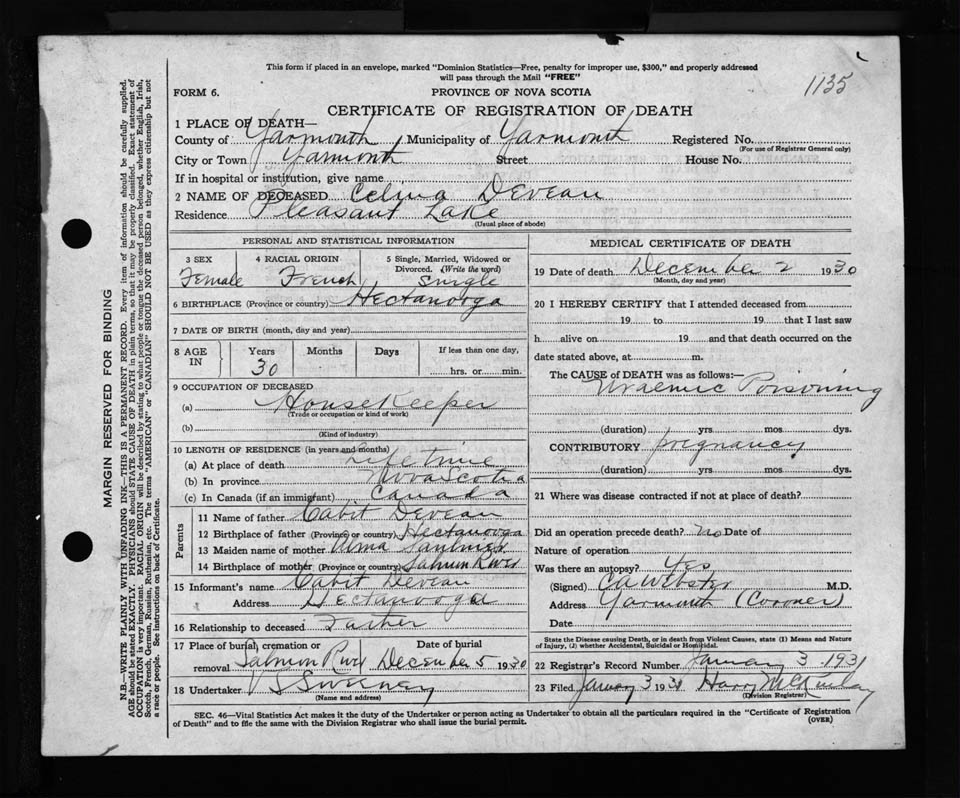 This form if placed in an envelope, marked "Dominion Statistics—Free, penalty for improper use, $300," and properly addressed
will pass through the Mail "FREE"
1135
FORM 6.
PROVINCE OF NOVA SCOTIA
CERTIFICATE OF REGISTRATION OF DEATH
1 PLACE OF DEATH—
County of Yarmouth Municipality of Yarmouth Registered No.
(For use of Registrar General only)
City or Town Yarmouth Street House No.
If in hospital or institution, give name
2 NAME OF DECEASED Celina Deveau
Residence Pleasant Lake
(Usual place of abode)
PERSONAL AND STATISTICAL INFORMATION
3 SEX 4 RACIAL ORIGIN 5 Single, Married, Widowed or
Divorced. (Write the word)
Female French Single
6 BIRTHPLACE (Province or country) Hectanooga
7 DATE OF BIRTH (month, day and year)
8 AGE IN Years Months Days If less than one day,
30 hrs. or min.
9 OCCUPATION OF DECEASED
(a) HouseKeeper
(Trade or occupation or kind of work)
(b)
(Kind of industry)
10 LENGTH OF RESIDENCE (in years and months)
(a) At place of death Life time
(b) In province Nova Scotia
(c) In Canada (if an immigrant) Canada
Parents
11 Name of father Cabit Deveau
12 Birthplace of father (Province or country) Hectanooga
13 Maiden name of mother Alma Saulnier
14 Birthplace of mother (Province or country) Salmon River
15 Informant's name Cabit Deveau
Address Hectanooga
16 Relationship to deceased Father
17 Place of burial, cremation or Date of burial
removal Salmon River December 5 1930
18 Undertaker V S Sweeney
(Name and address)
MEDICAL CERTIFICATE OF DEATH
19 Date of death December 2 1930
(Month, day and year)
20 I HEREBY CERTIFY that I attended deceased from
19 to 19 that I last saw
h alive on 19 and that death occurred on the
date stated above, at m.
The CAUSE of DEATH was as follows:—
Uraemic Poisoning
(duration) yrs mos dys.
CONTRIBUTORY pregnancy
(duration) yrs. mos. dys.
21 Where was disease contracted if not at place of death?
Did an operation precede death? No Date of
Nature of operation
Was there an autopsy? Yes
(Signed) CA Webster M.D.
Address Yarmouth (Coroner)
Date
State the Disease causing Death, or in death from Violent Causes, state (1) Means and Nature
of Injury, (2) whether Accidental, Suicidal or Homicidal.
22 Registrar's Record Number January 3 1931
23 Filed January 3 1931 Harry
(Division Registrar)
SEC. 46—Vital Statistics Act makes it the duty of the Undertaker or person acting as Undertaker to obtain all the particulars required in the "Certificate of Registration
of Death" and to file the same with the Division Registrar who shall issue the burial permit.
(OVER)
MARGIN RESERVED FOR BINDING
N.B.—WRITE PLAINLY WITH UNFADING INK—THIS IS A PERMANENT RECORD. Every item of information should be carefully supplied.
AGE should be stated EXACTLY. PHYSICIANS should STATE CAUSE OF DEATH in plain terms, so that it may be properly classified. Exact statement of
OCCUPATION is very important. RACIAL ORIGIN will be described by stating to what people or tongue the deceased person belonged, whether English, Irish,
Scotch, French, German, Russian, Ruthenian, etc. The terms "AMERICAN" or "CANADIAN" SHOULD NOT BE USED as they express citizenship but not
a race or people. See instructions on back of Certificate.